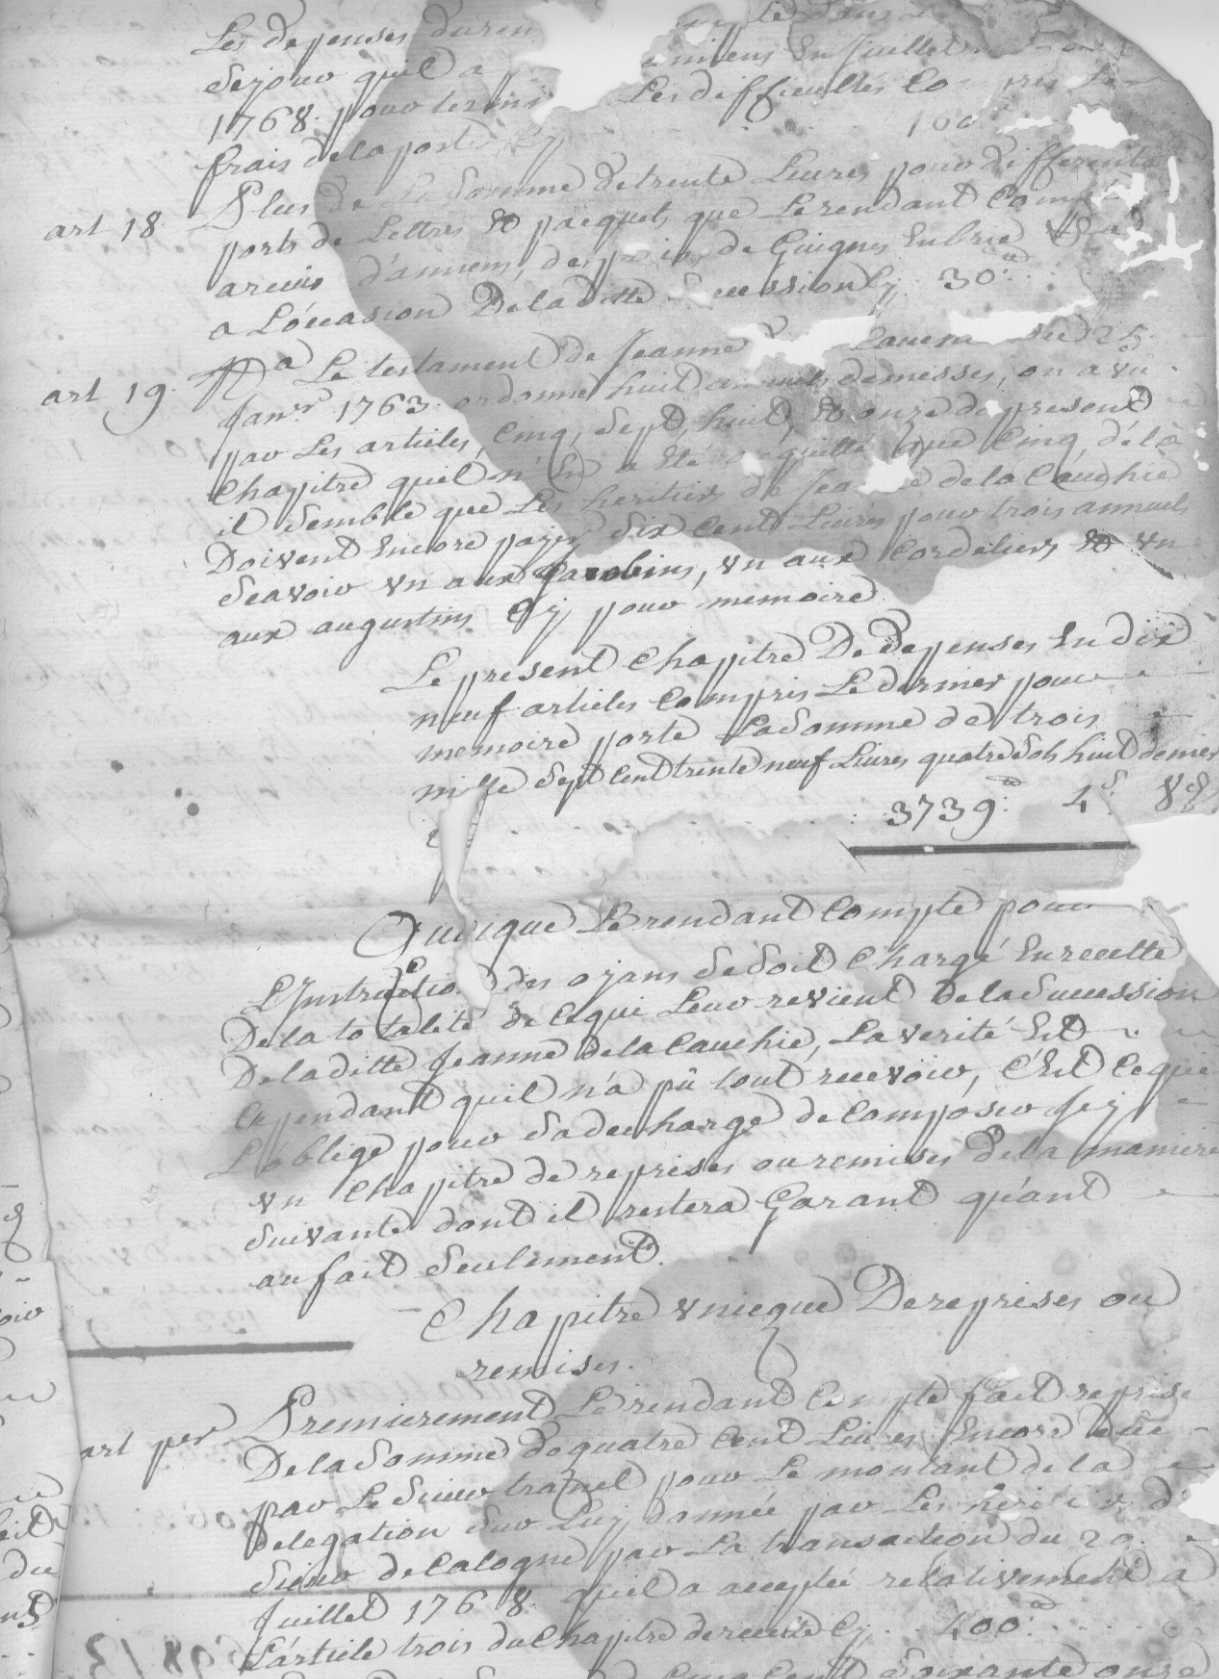 Les depenses duren
Sejour quil a amiens En Juillet
1768. pour termi Les difficultés Compris Le
frais de la poste Cy 100
art 18. Plus de La Somme de trente Livres pour differents
ports de Lettres & pacquets que Le rendant Compte
a recuës d'amiens, de paris, de Guignes En brie &
a L'óccasion De la ditte Succession Cy. 30.tt
art 19. Na Le testament de Jeanne Cauchie du 25.
Janvr. 1763. ordonne huit annuels de messes, on a vu
par Les articles, Cinq, Sept, huit, & onze de present
Chapitre quil n'En a Eté acquitté que Cinq, délà
il Semble que Les heritiers de Jeanne de la Cauchie
Doivent Encore payer Six Cent Livres pour trois annuels
Scavoir vn aux Jacobins, vn aux Cordeliers & vn
aux augustins Cy pour memoire
Le present Chapitre De Depenses En dix
neuf articles Compris Le dernier pour
memoire porte La Somme de trois
mille Sept Cent trente neuf Livres quatre Sols huit denier
3739.tt 4.s 8.d
Quoique Le rendant Compte pour
L'Instruction des oyans Se Soit Chargé En recette
De la totalité de Ce qui Leur revient De la Succession
De la ditte Jeanne de la Cauchie, La verité Est
Cependant quil n'a pû tout recevoir, C'Est Ce qui
L'oblige pour Sa decharge de Composer Icy
vn Chapitre de reprises ou remises De la maniere
Suivante dont il restera Garant qu'ant
au fait Seulement.
Chapitre vnicque De reprises ou
remises.
art per Premierement Le rendant Compte fait reprise
De la Somme de quatre Cent Livres Encore düe
par Le Sieur tranel pour Le montant de la
delegation Sur Luy donnée par Les heritiers du
Sieur de Calogne par La transaction du 29.
Juillet 1768. quil a acceptée relativement a
L'article trois du Chapitre de recette Cy. 400.tt
Cinq Cent Soixante onze